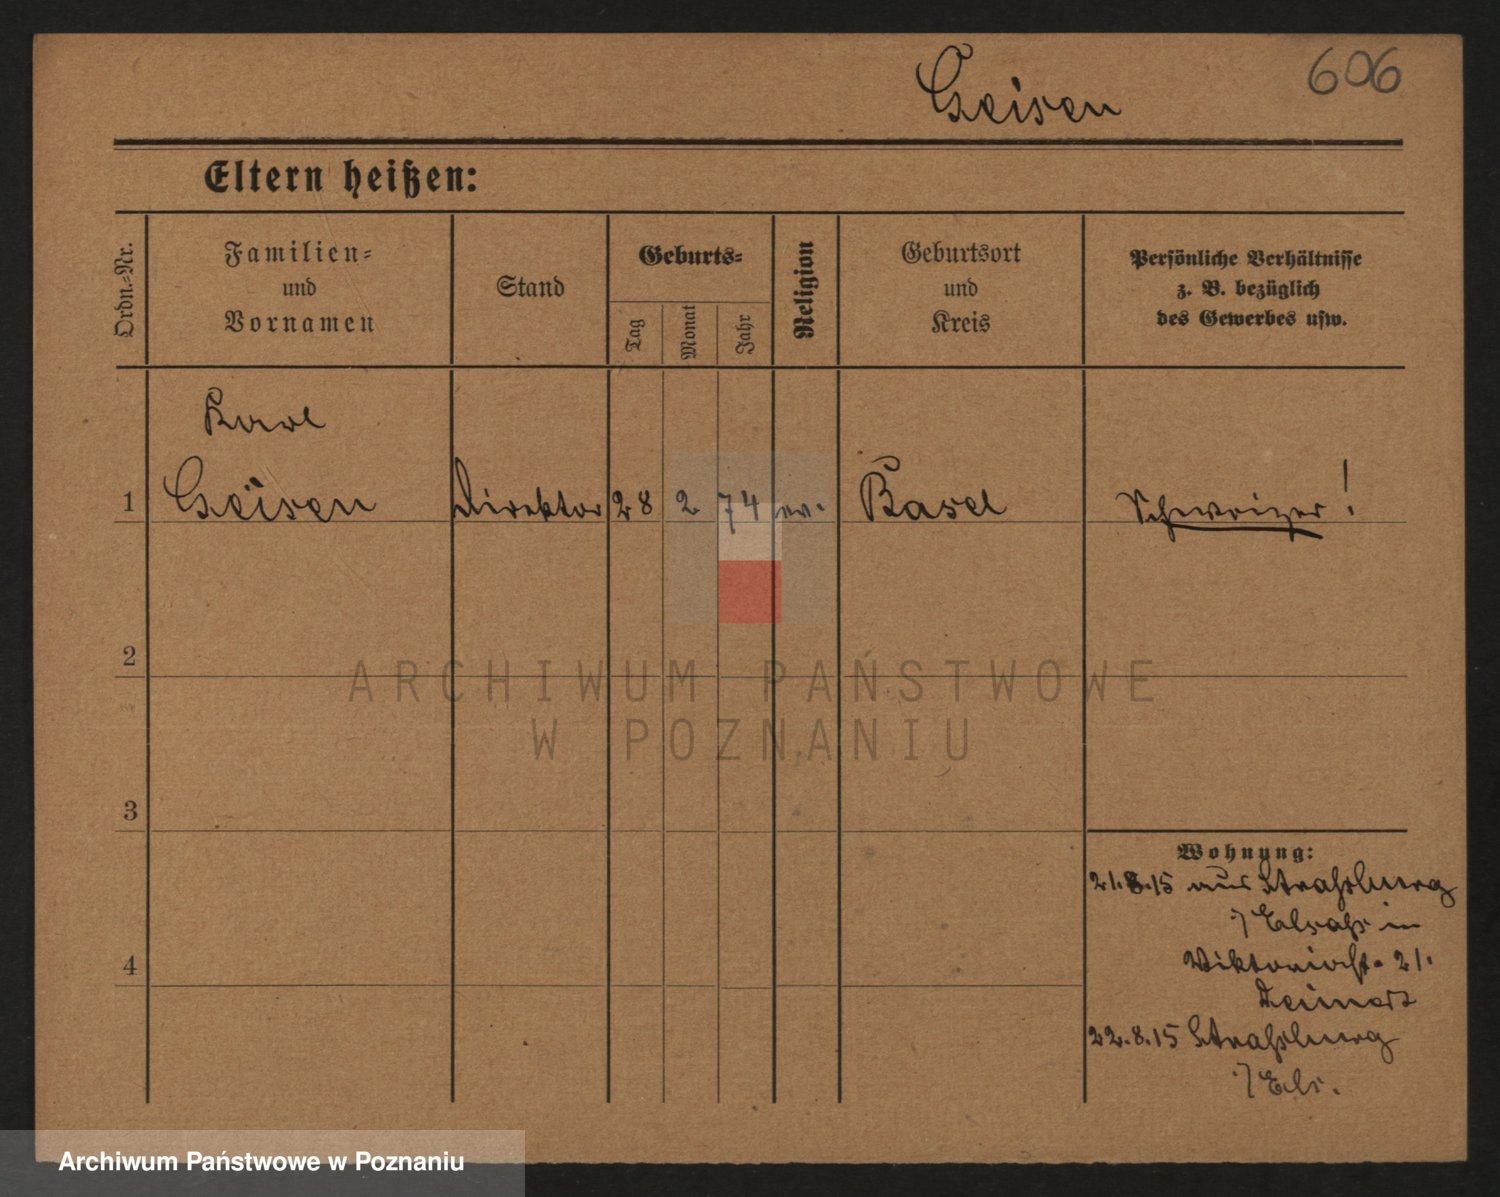 Geisen
606
Eltern heißen:
Ordn.-Nr.
Familien-
und
Vornamen
Stand
Geburts-
Tag
Monat
Jahr
Religion
Geburtsort
und
Kreis
Persönliche Verhältnisse
z. B. bezüglich
des Gewerbes usw.
Karl
1 Geisen Direktor 28 2 74 ev. Basel Schweizer!
2
3
4
Wohnung:
21.8.15 aus Straßburg
i/Elsaß in
Viktoriastr. 21.
22.8.15 Straßburg
i/Els.
ARCHIWUM PAŃSTWOWE
W POZNANIU
Archiwum Państwowe w Poznaniu